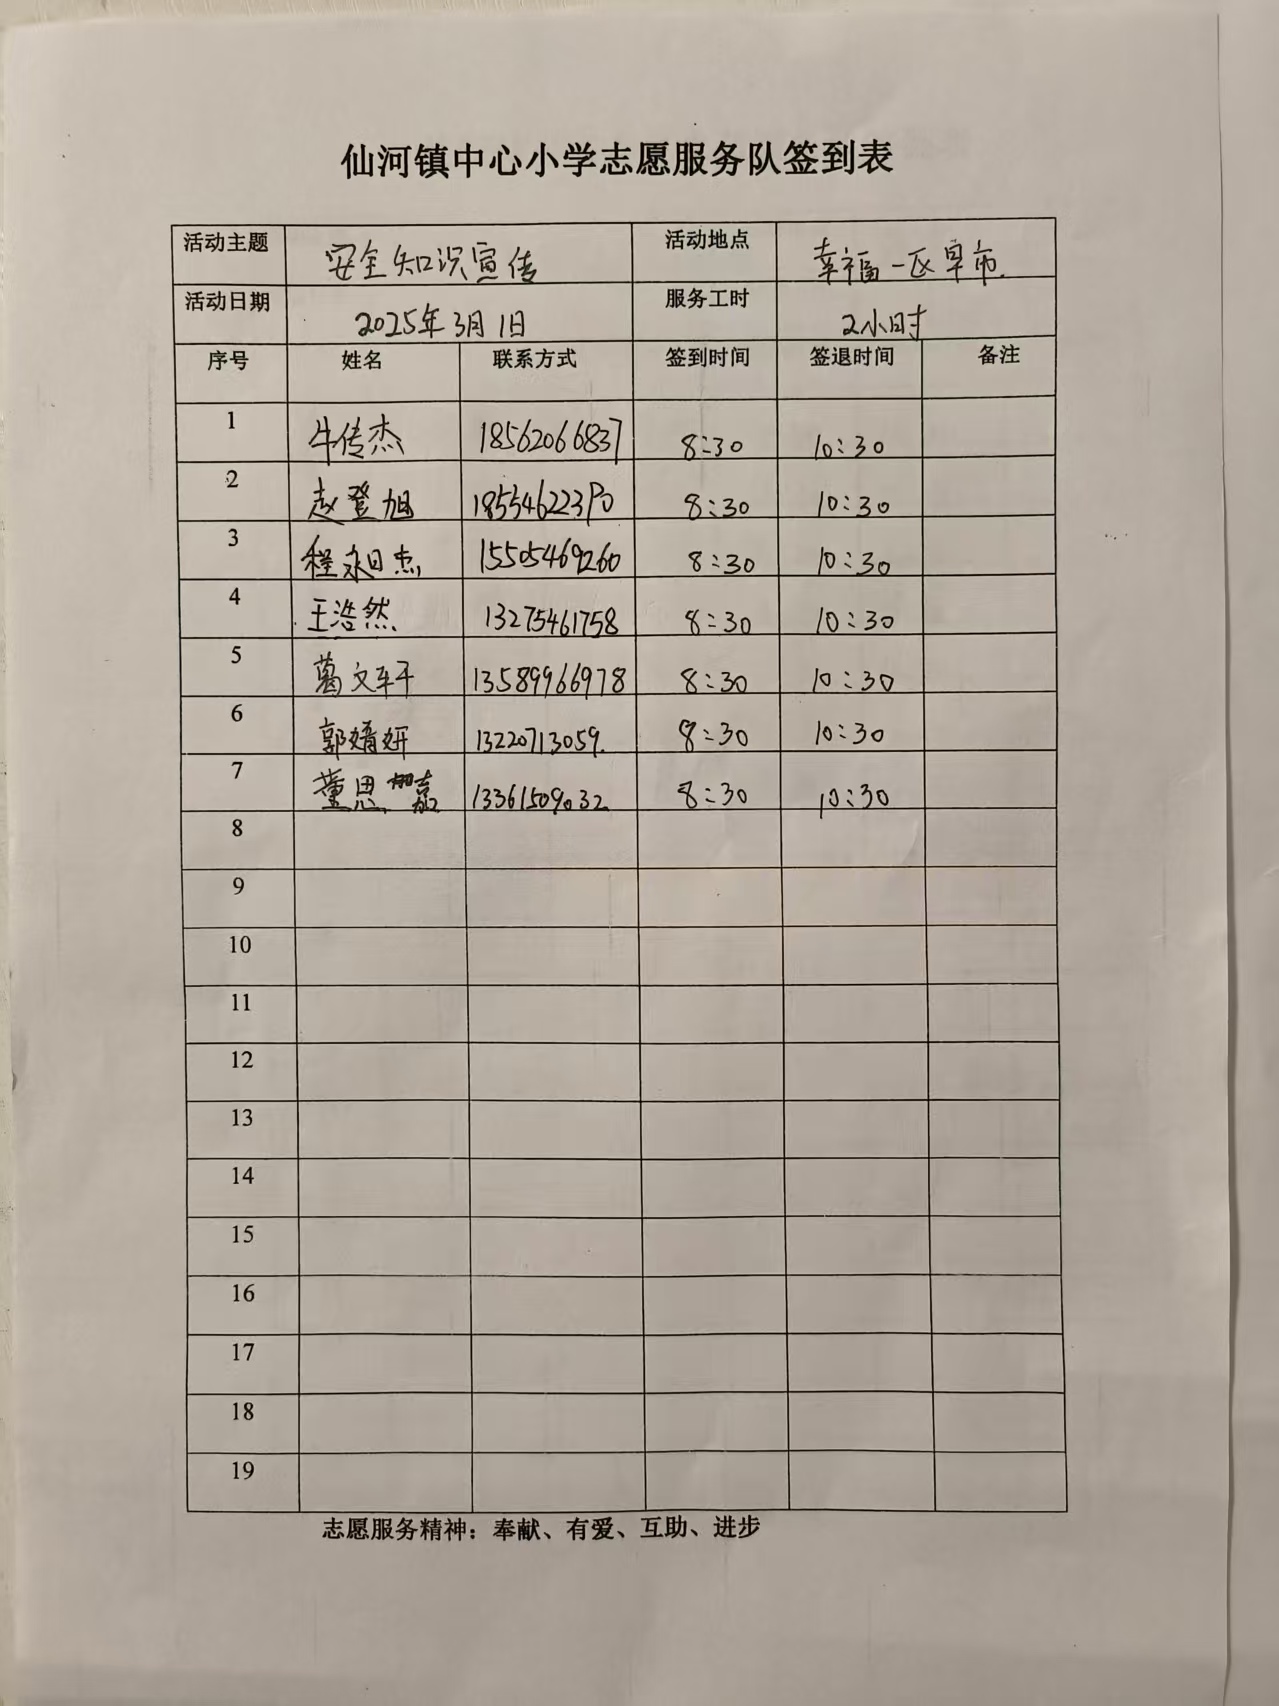 仙河镇中心小学志愿服务队签到表
活动主题 安全知识宣传 活动地点 幸福一区早市
活动日期 2025年3月1日 服务工时 2小时
序号 姓名 联系方式 签到时间 签退时间 备注
1 牛传杰 18562066837 8:30 10:30
2 赵登旭 18554622390 8:30 10:30
3 程永日杰 15505469260 8:30 10:30
4 王浩然 13275461758 8:30 10:30
5 葛文轩 13589966978 8:30 10:30
6 郭婧妍 13220713059 8:30 10:30
7 董思嘉 13361509032 8:30 10:30
8
9
10
11
12
13
14
15
16
17
18
19
志愿服务精神：奉献、有爱、互助、进步